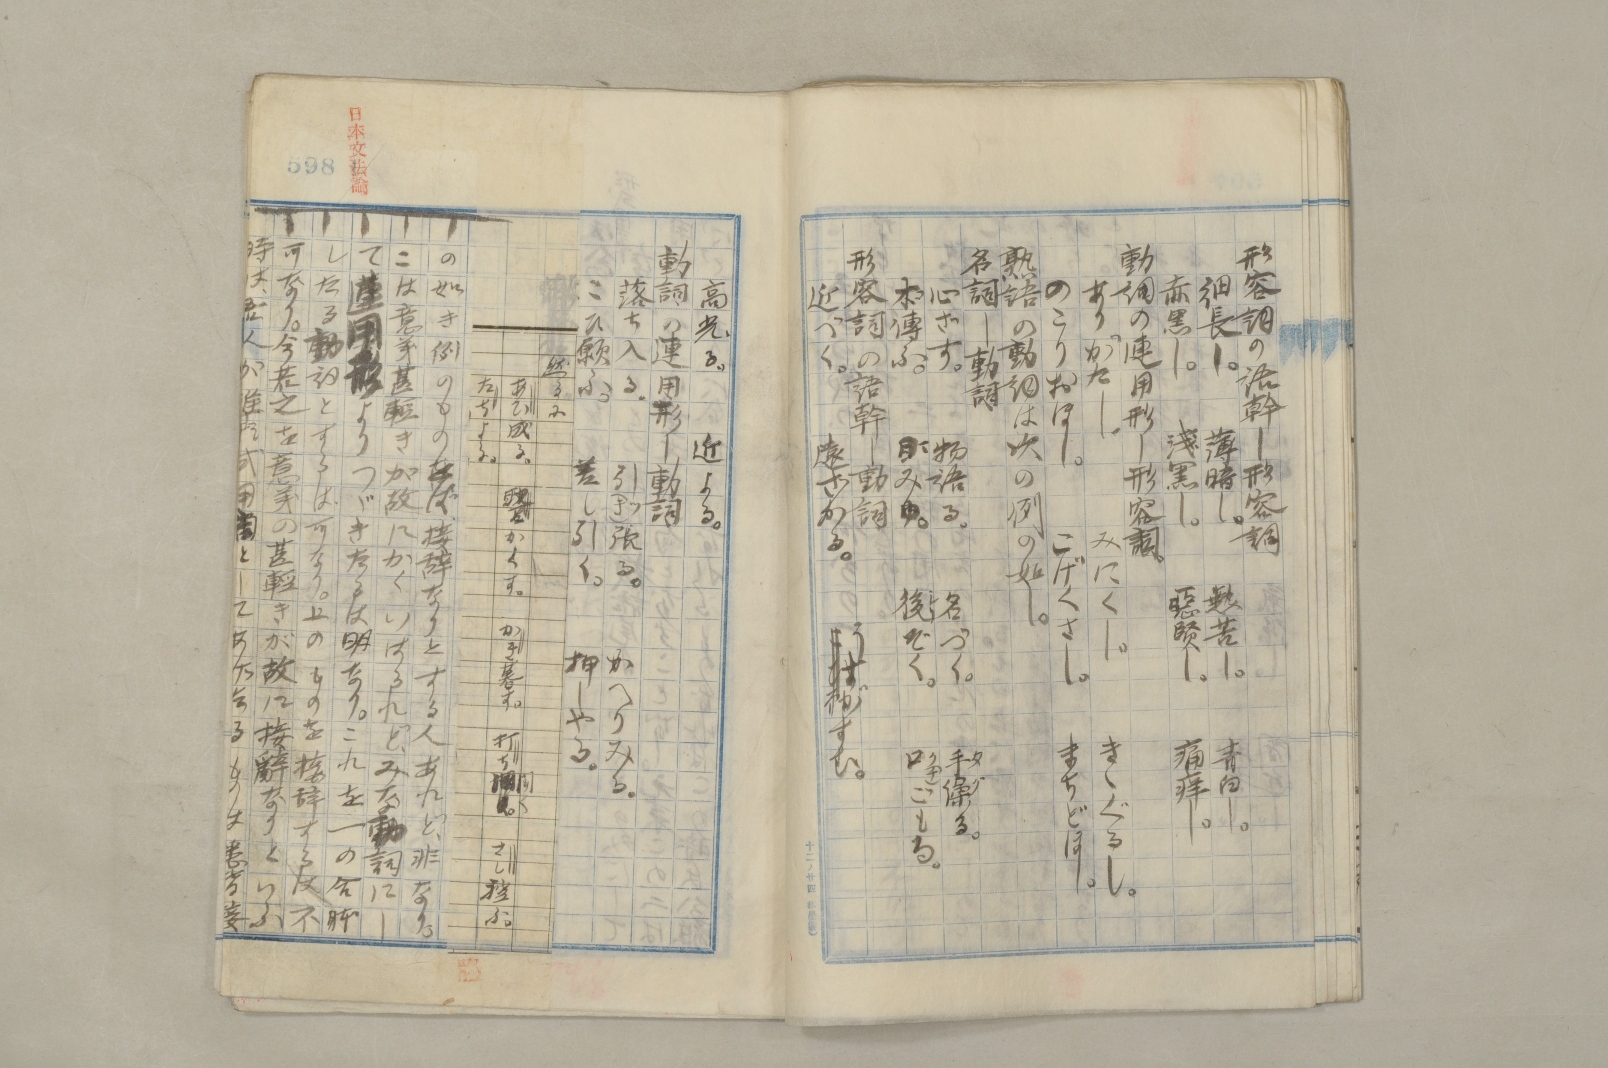 形容詞の語幹―形容詞
細長し。 薄暗し。 青白し。
赤黒し。 淺黒し。 惡賢し。 痛痒し。
動詞の連用形―形容詞。
ありがたし。 みにくし。 きゝぐるし。
のこりおほし。 こげくさし。 まちどほし。
熟語の動詞は次の例の如し。
名詞―動詞
心ざす。 物語る。 名づく。 手繰る。
末傳ふ。 後ぞく。 口ごもる。
形容詞の語幹―動詞
近づく。 遠ざかる。
高光る。 近よる。
動詞の連用形―動詞
落ち入る。 引き張る。 かへりみる。
こひ願ふ。 差し引く。 押しやる。
然るに
あひ成る。 かくす。 かき暮す。 打ち開く
たちよる。 さし
の如き例のものをば接辞なりとする人あれど、非なり。
こは意義甚輕きが故にかくいはるれど、みな動詞にし
て連用形よりつゞきたるは明なり。これを一の合成
したる動詞とするは可なり。上のものを接辞するは不
可なり。今若之を意義の甚輕きが故に接辭なりといふ
時は、吾人が
日本文法論
598